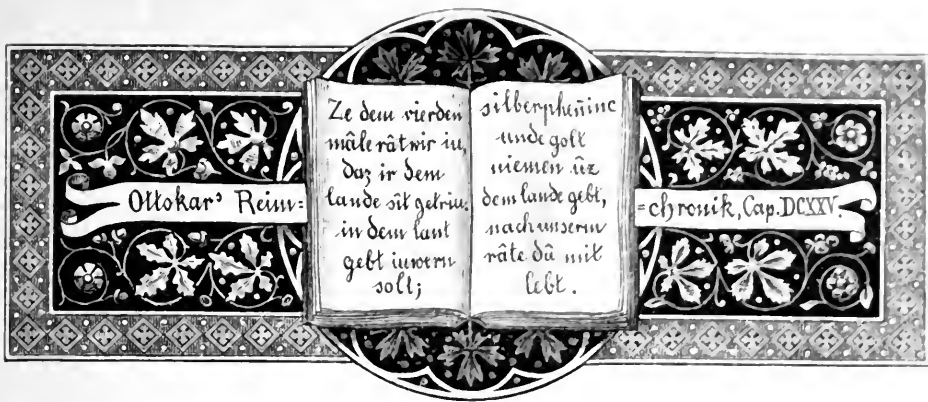 Ottokar's Reim=
Ze dem vierden
mâle rât wir iu,
daz ir dem
lande sît getriu.
in dem lant
gebt iuwern
solt;
silberphenninc
unde golt
niemen ûz
dem lande gebt,
nach unserm
râte dâ mit
lebt.
=chronik, Cap. DCXXV.